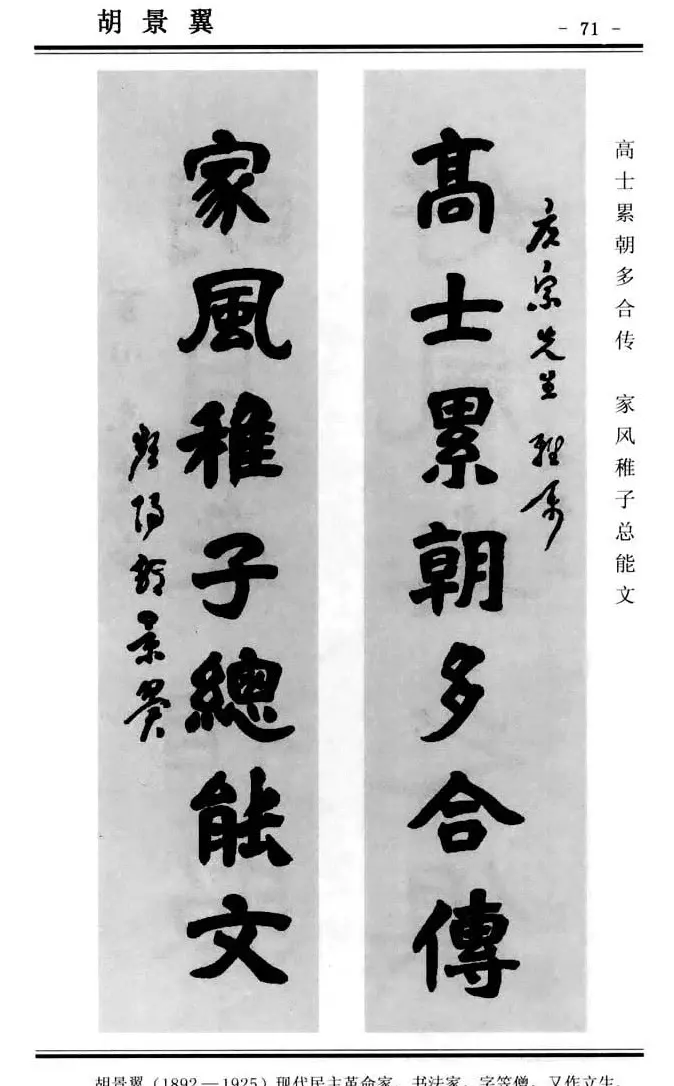 胡景翼
- 71 -
高士累朝多合传 家风稚子总能文
先生雅属
高士累朝多合傳
家風稚子總能文
景翼
胡景翼(1892—1925)现代民主革命家、书法家。字笠僧,又作立生